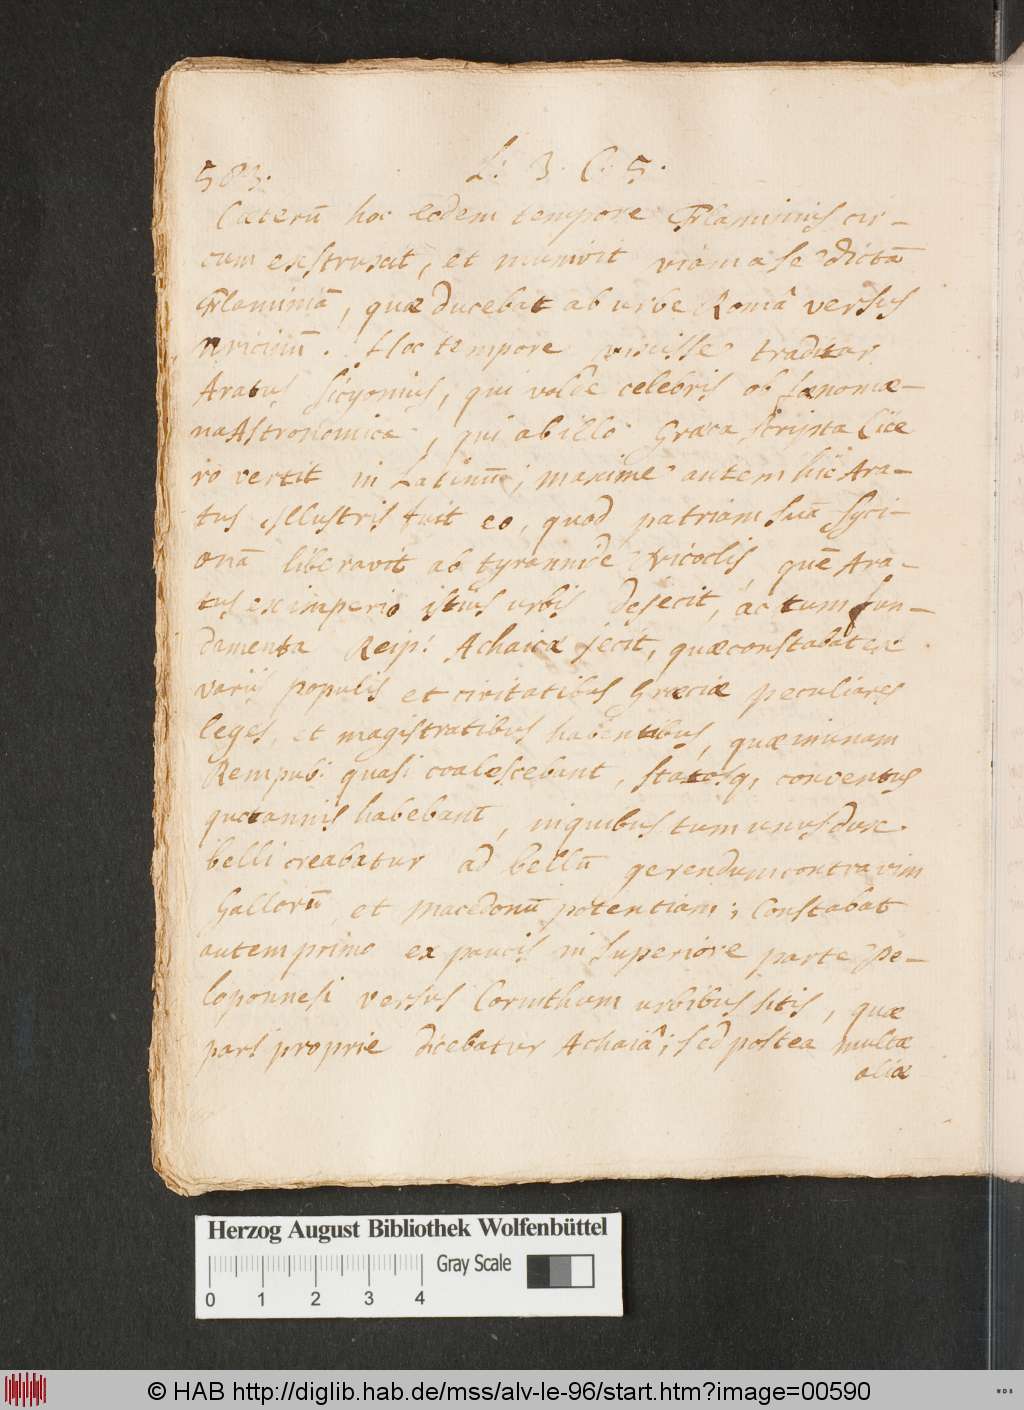 583.
L. 3. C. 5.
Cæterū hoc eodem tempore Flaminius cir-
cum exstruxit, et munivit viam a se dictā
Flaminiā, quæ ducebat ab urbe Româ versus
Aricinū. Hoc tempore vixisse traditur
Aratus Sicyonius, qui valde celebris ob fænomæ-
na Astronomica, qui ab illo Græca scripta Cice
ro vertit in Latinū; maxime autem hic Ara-
tus illustris fuit eo, quod patriam suā Syci-
onā liberavit ab tyrannide Nicoclis, quē Ara-
tus ex imperio istius urbis dejecit, ac tum fun-
damenta Reip: Achaicæ jecit, quæ constabat ex
variis populis et civitatibus Græciæ peculiares
leges, et magistratibus habentibus, quæ in unam
Rempub: quasi coalescebant, statosq, conventus
quotannis habebant, in quibus tum unus dux
belli creabatur ad bellū gerendum contra vim
Gallorū, et Macedonū potentiam; Constabat
autem primo ex paucis in superiore parte Pe-
loponnesi versus Corinthum urbibus sitis, quæ
pars proprie dicebatur Achaiâ; sed postea multæ
aliæ
Herzog August Bibliothek Wolfenbüttel
Gray Scale
0 1 2 3 4
© HAB http://diglib.hab.de/mss/alv-le-96/start.htm?image=00590